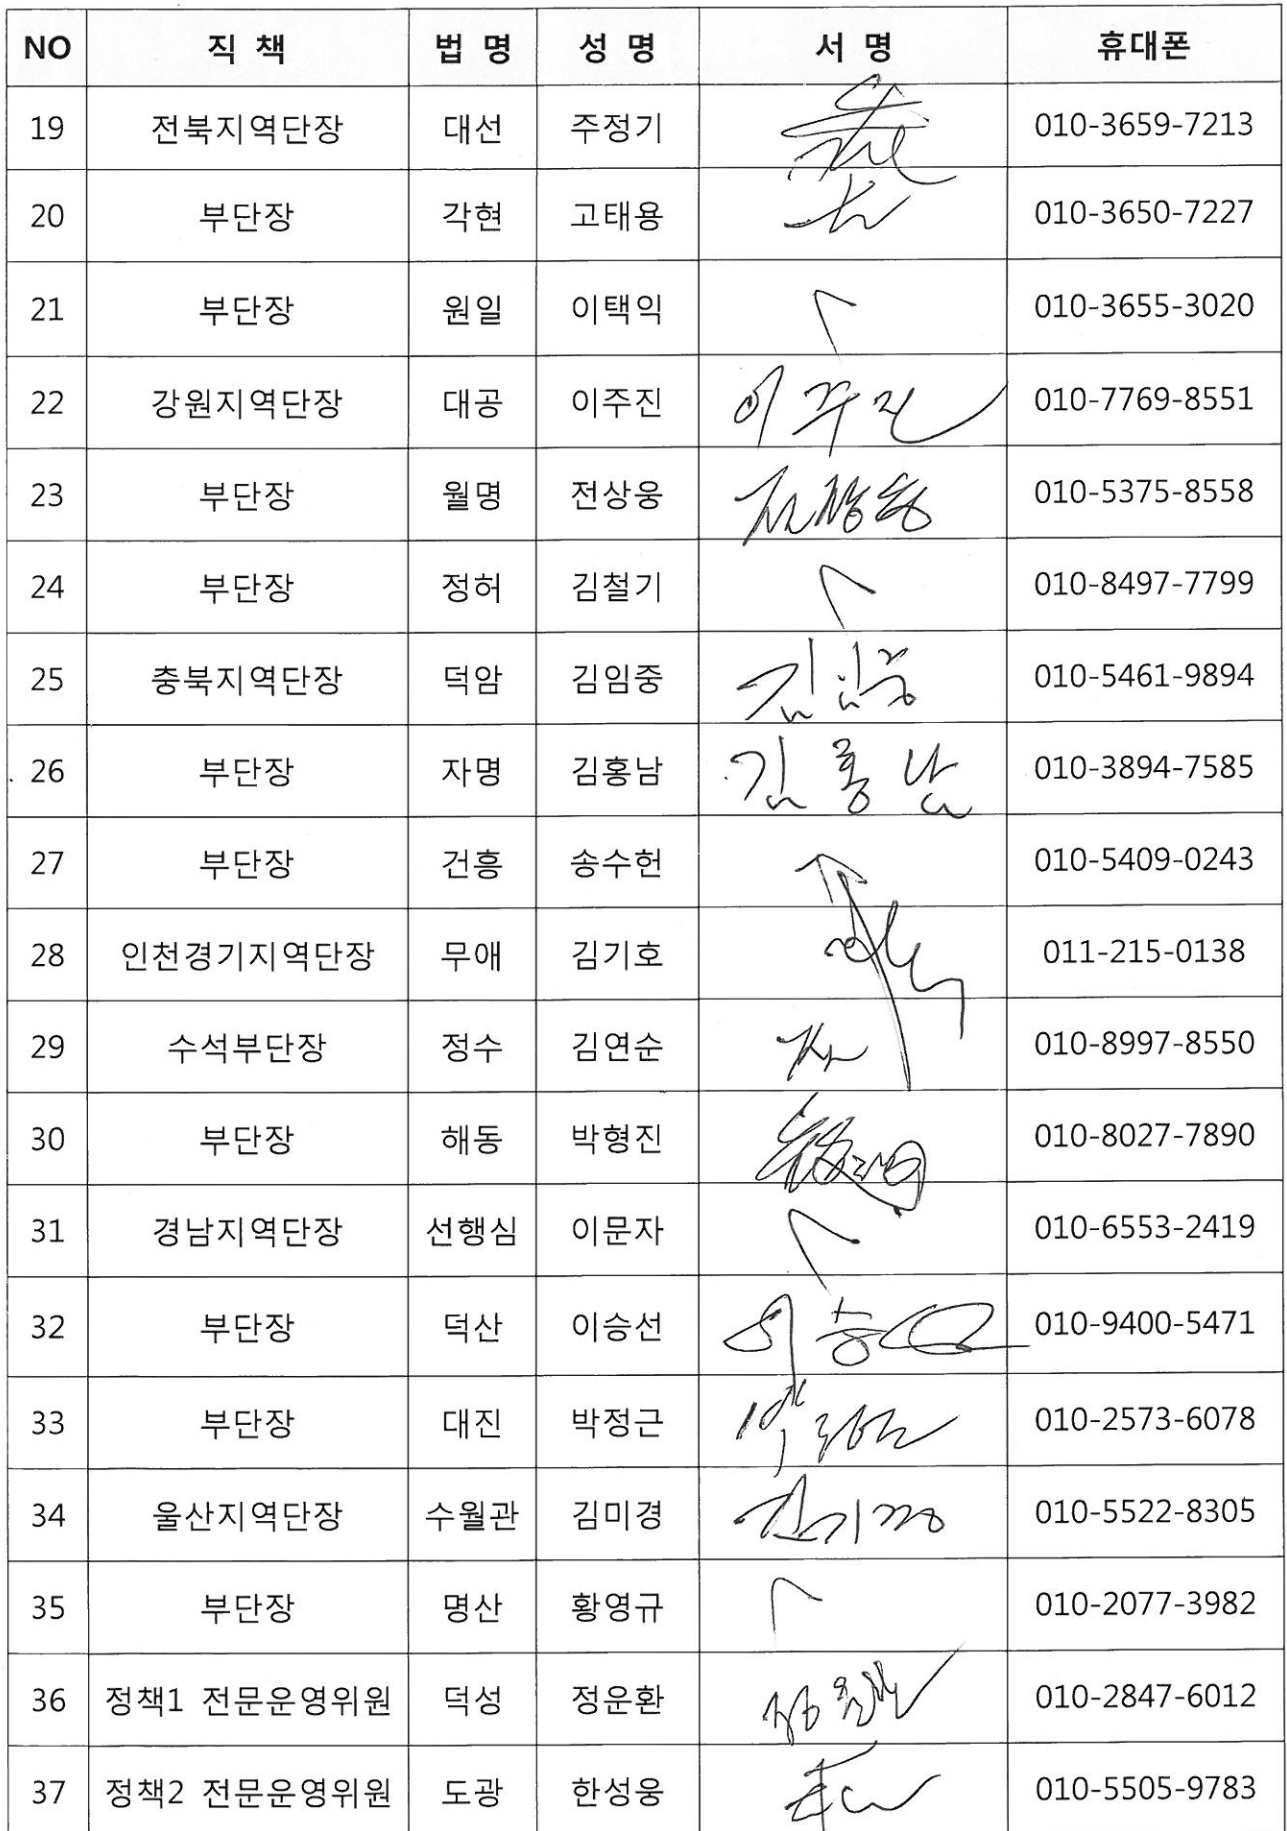 NO 직 책 법 명 성 명 서 명 휴대폰
19 전북지역단장 대선 주정기 010-3659-7213
20 부단장 각현 고태용 010-3650-7227
21 부단장 원일 이택익 010-3655-3020
22 강원지역단장 대공 이주진 이주진 010-7769-8551
23 부단장 월명 전상웅 전상웅 010-5375-8558
24 부단장 정허 김철기 010-8497-7799
25 충북지역단장 덕암 김임중 김임중 010-5461-9894
26 부단장 자명 김홍남 김홍남 010-3894-7585
27 부단장 건흥 송수헌 010-5409-0243
28 인천경기지역단장 무애 김기호 011-215-0138
29 수석부단장 정수 김연순 010-8997-8550
30 부단장 해동 박형진 010-8027-7890
31 경남지역단장 선행심 이문자 010-6553-2419
32 부단장 덕산 이승선 010-9400-5471
33 부단장 대진 박정근 010-2573-6078
34 울산지역단장 수월관 김미경 010-5522-8305
35 부단장 명산 황영규 010-2077-3982
36 정책1 전문운영위원 덕성 정운환 010-2847-6012
37 정책2 전문운영위원 도광 한성웅 010-5505-9783